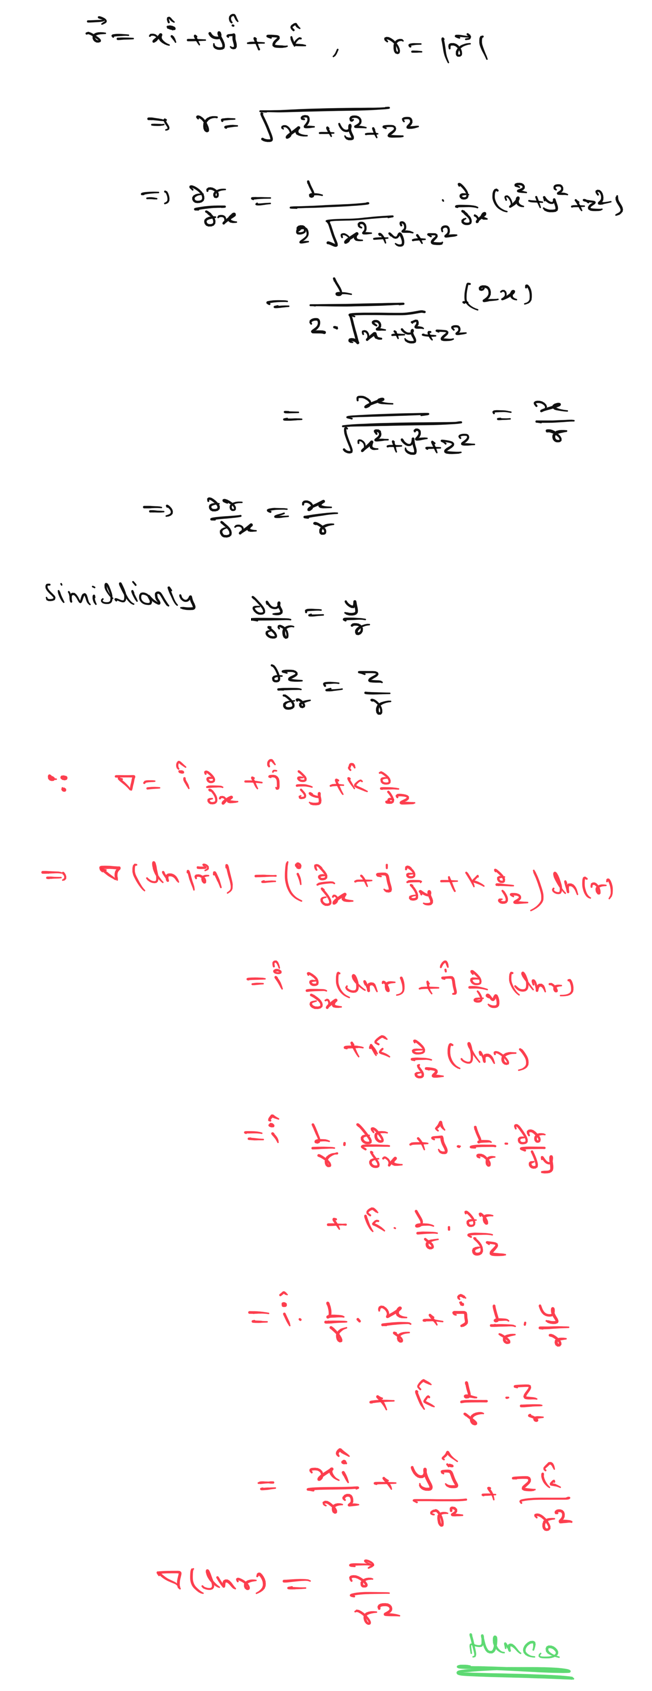 \vec{r} = x\hat{i} + y\hat{j} + z\hat{k} , r = |\vec{r}|
⇒ r = \sqrt{x^2+y^2+z^2}
⇒ \frac{∂r}{∂x} = \frac{1}{2\sqrt{x^2+y^2+z^2}} \cdot \frac{∂}{∂x}(x^2+y^2+z^2)
= \frac{1}{2 \cdot \sqrt{x^2+y^2+z^2}} (2x)
= \frac{x}{\sqrt{x^2+y^2+z^2}} = \frac{x}{r}
⇒ \frac{∂r}{∂x} = \frac{x}{r}
Simillianly \frac{∂y}{∂r} = \frac{y}{r}
\frac{∂z}{∂r} = \frac{z}{r}
∵ ∇ = \hat{i} \frac{∂}{∂x} + \hat{j} \frac{∂}{∂y} + \hat{k} \frac{∂}{∂z}
⇒ ∇(ln|\vec{r}|) = (i \frac{∂}{∂x} + j \frac{∂}{∂y} + k \frac{∂}{∂z}) ln(r)
= \hat{i} \frac{∂}{∂x}(lnr) + \hat{j} \frac{∂}{∂y}(lnr)
+ \hat{k} \frac{∂}{∂z}(lnr)
= \hat{i} \frac{1}{r} \cdot \frac{∂r}{∂x} + \hat{j} \cdot \frac{1}{r} \cdot \frac{∂r}{∂y}
+ \hat{k} \cdot \frac{1}{r} \cdot \frac{∂r}{∂z}
= \hat{i} \cdot \frac{1}{r} \cdot \frac{x}{r} + \hat{j} \frac{1}{r} \cdot \frac{y}{r}
+ \hat{k} \frac{1}{r} \cdot \frac{z}{r}
= \frac{x\hat{i}}{r^2} + \frac{y\hat{j}}{r^2} + \frac{z\hat{k}}{r^2}
∇(lnr) = \frac{\vec{r}}{r^2}
Hence